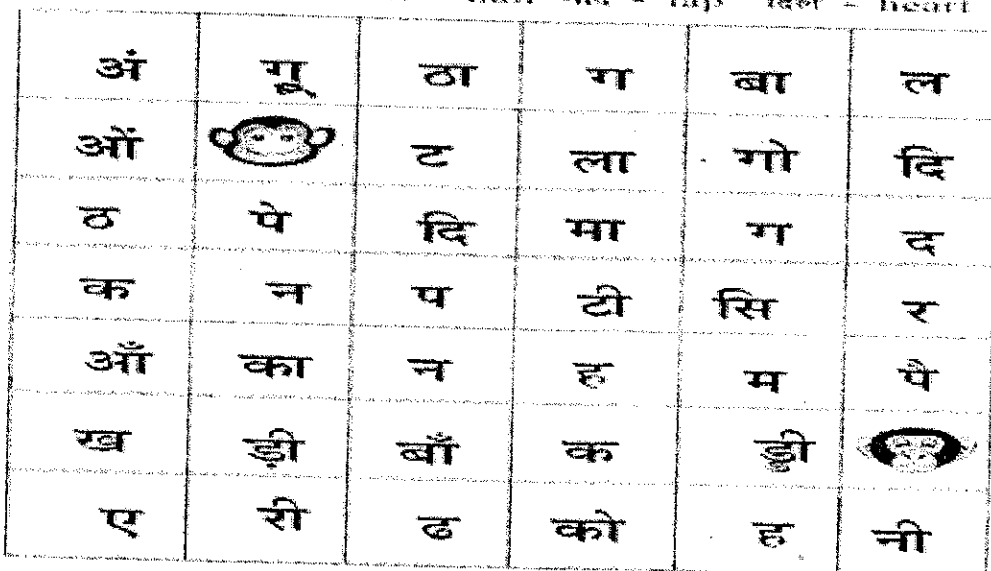 दिल - heart
अं गू ठा ग बा ल
ओं ट ला गो दि
ठ पे दि मा ग द
क न प टी सि र
आँ का न ह म पै
ख ड़ी बाँ क ड्डी
ए री ढ को ह नी